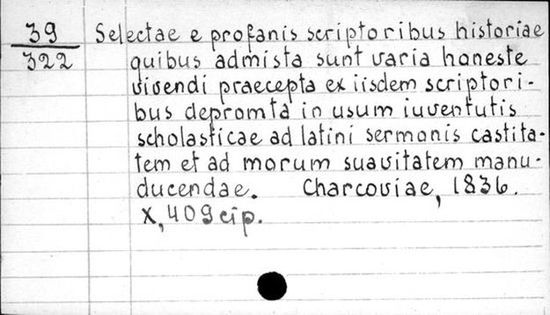 39 Selectae e profanis scriptoribus historiae
322 quibus admista sunt varia honeste
vivendi praecepta ex iisdem scriptori-
bus depromta in usum iuventutis
scholasticae ad latini sermonis castita-
tem et ad morum suavitatem manu-
ducendae. Charcoviae, 1836.
X, 409 cip.